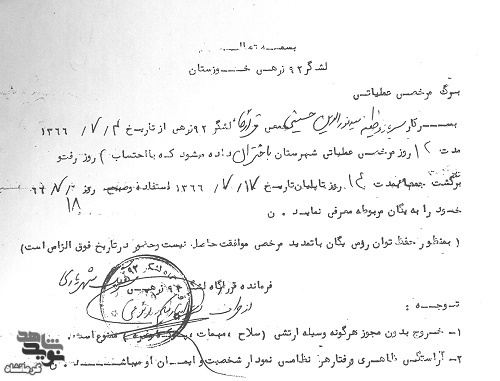 بسمه تعالی
لشگر ۹۲ زرهی خوزستان
برگ مرخصی عملیاتی
بسرکار سرباز وظیفه سید نورالدین حسینی جمعی قرارگاه لشگر ۹۲ زرهی از تاریخ ۴ / ۷ / ۱۳۶۶
مدت ۱۲ روز مرخصی عملیاتی شهرستان باختران داده میشود که بااحتساب ( روز رفتو
برگشت جمعا بمدت ۱۴ روز تاپایان تاریخ ۱۷ / ۷ / ۱۳۶۶ استفاده وصبح روز ۱۸ / ۷ / ۶۶
خود را به یگان مربوطه معرفی نماید . ن
( بمنظور حفظ توان رزمی یگان باتمدید مرخصی موافقت حاصل نیست وحضور در تاریخ فوق الزامی است )
فرمانده قرارگاه لشگر ۹۲ زرهی
توجه :
۱- خروج بدون مجوز هرگونه وسیله ارتشی ( سلاح ، مهمات ) ممنوع است
۲- آراستگی ظاهری و رفتار هر نظامی نمودار شخصیت و ایمان او میباشد . ن
نوید شاهد
کرمانشاه